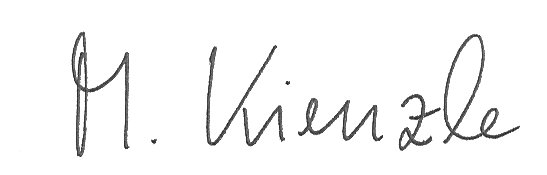 M. Kienzle